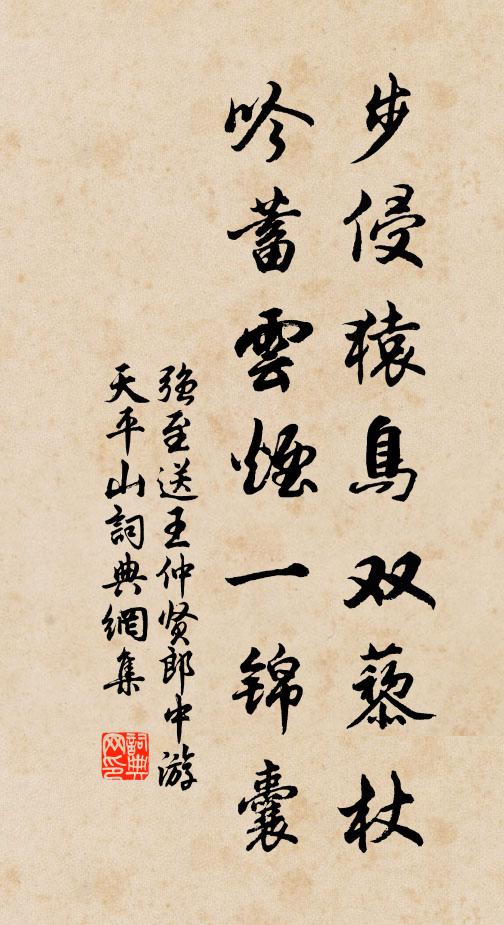 步侵猿鳥双藜杖
吟蓄雲煙一锦囊
强至送王仲贤郎中游
天平山詞典網集
詞典网印